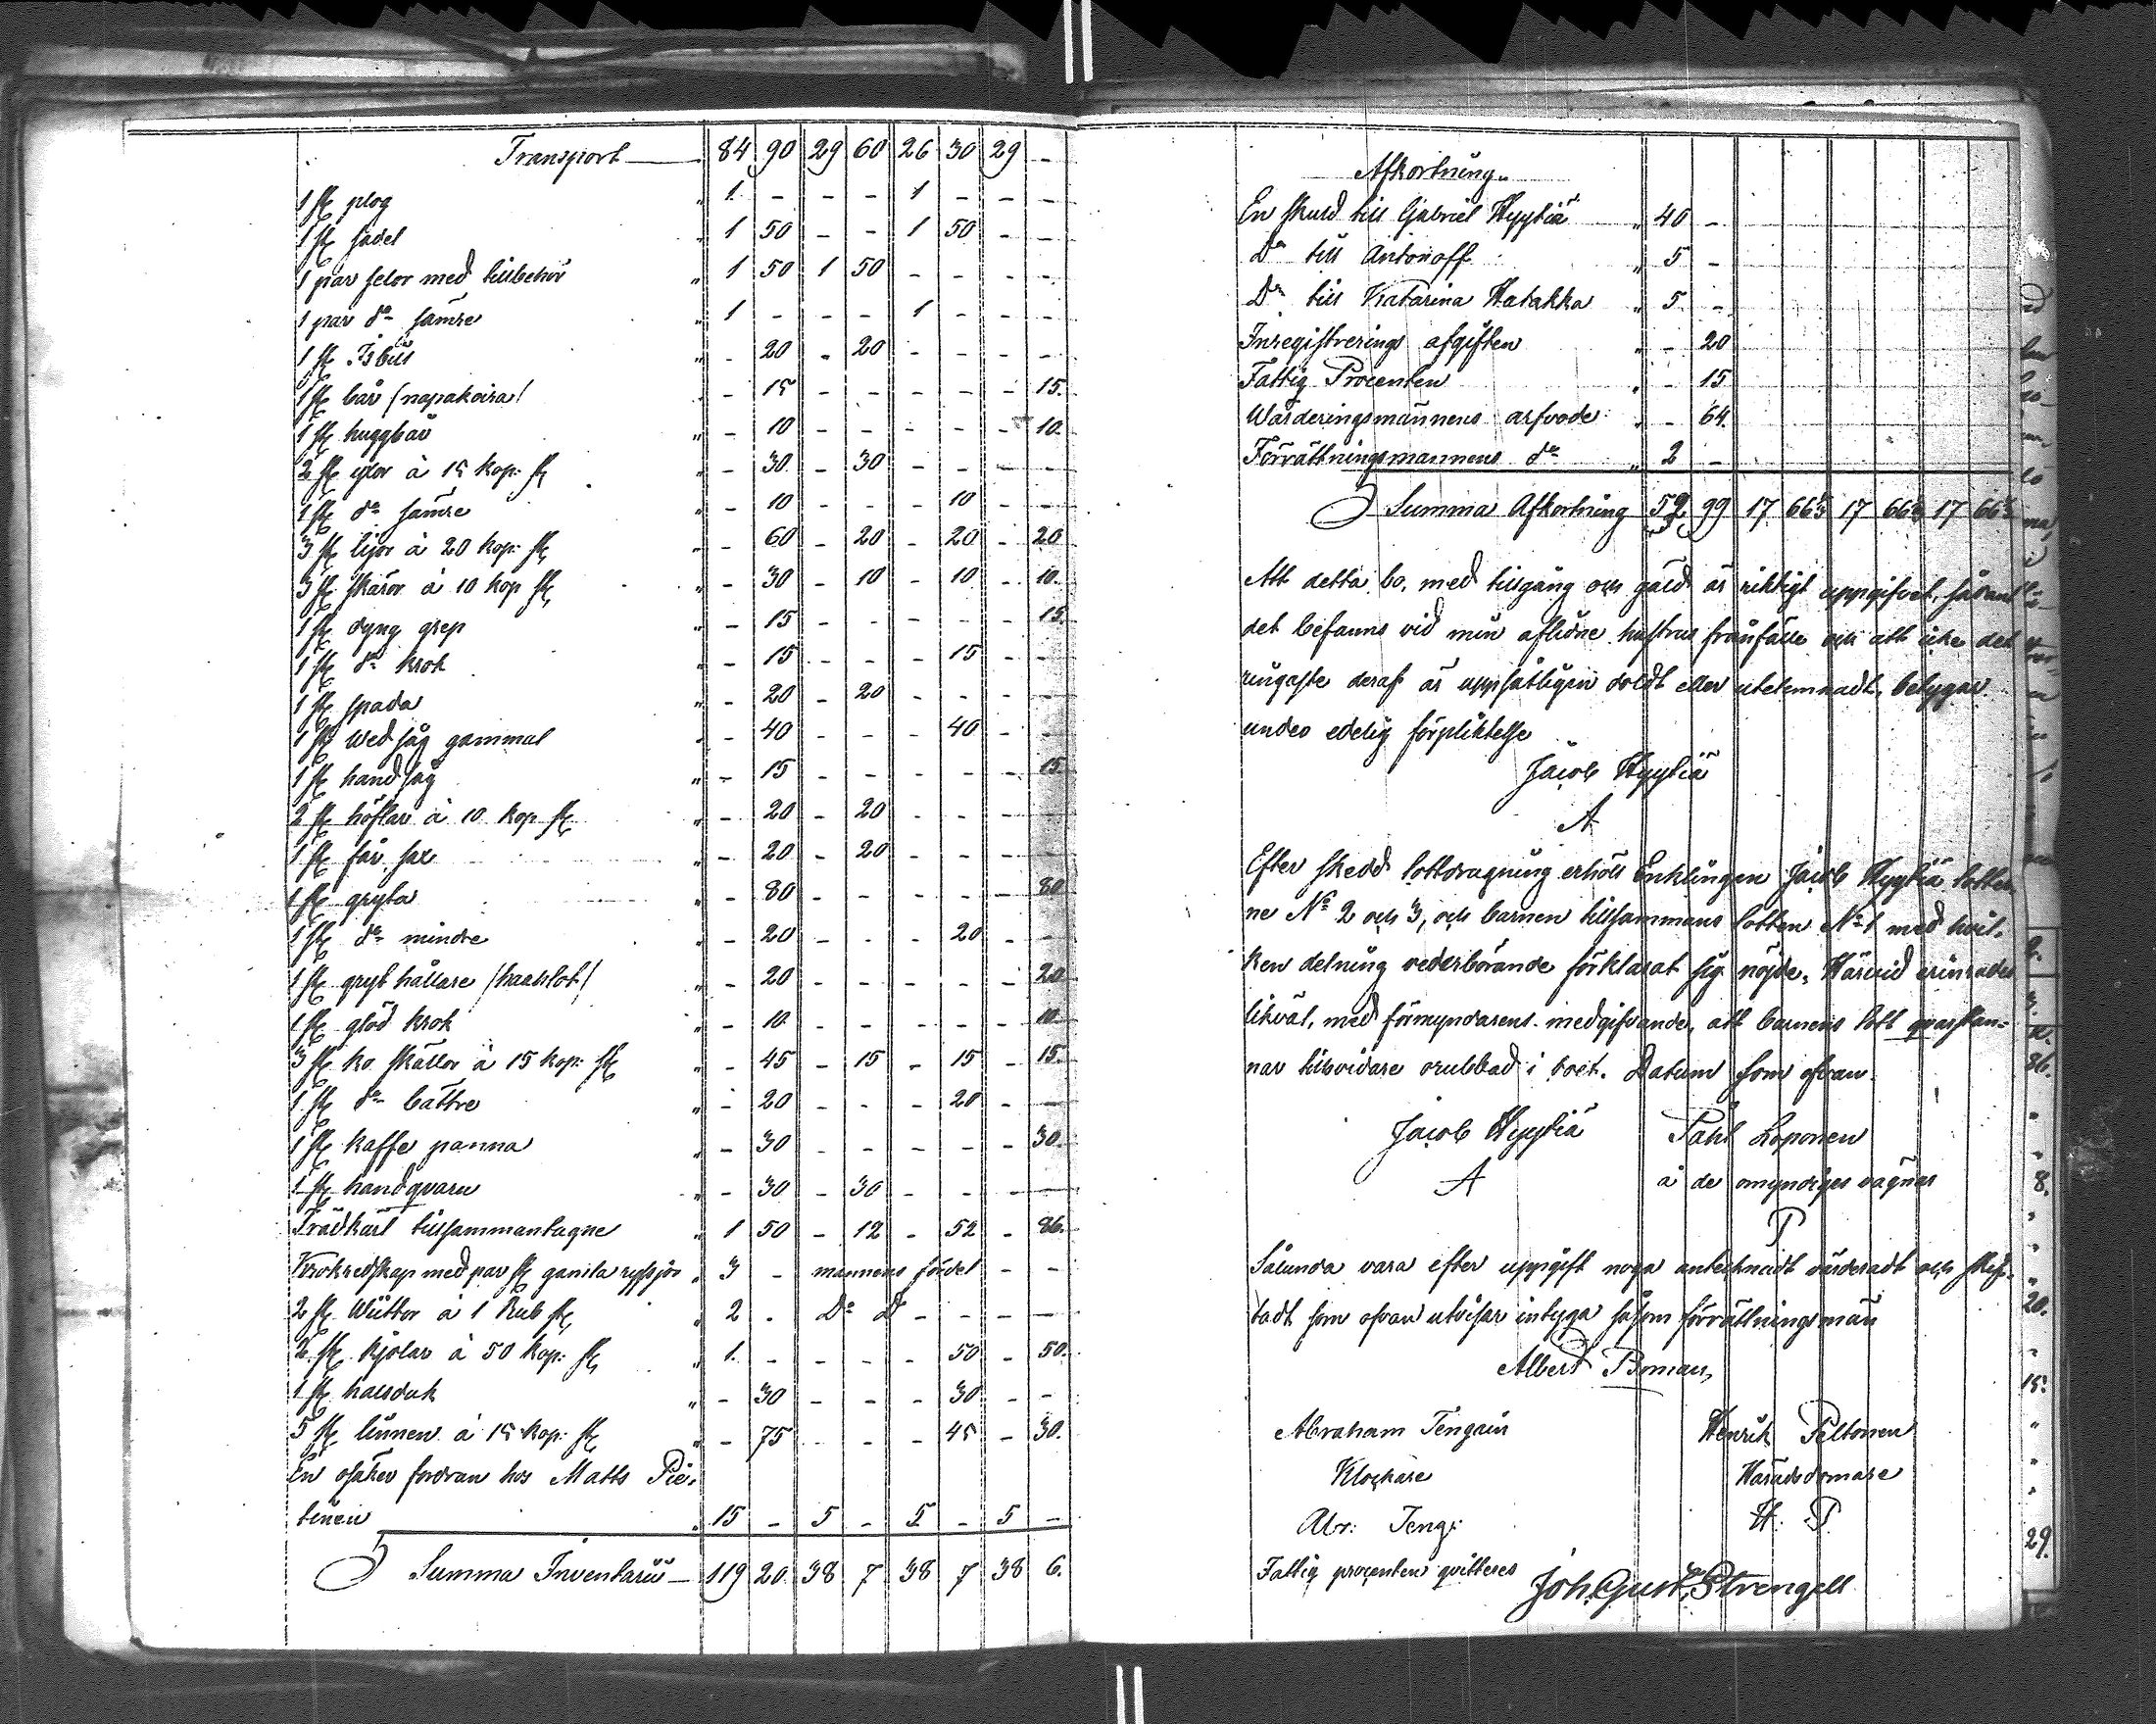 Transport 84 90 29 60 26 30 29 -
1 st plog " 1 - - - 1 - - -
1 st sadel " 1 50 - - 1 50 - -
1 par selor med tillbehör " 1 50 1 50 - - - -
1 par do sämre " 1 - - - 1 - - -
1 st Isbill " - 20 - 20 - - - -
1 st bår /napakoira/ - 15 - - - - - 15.
1 st huggbår " - 10 - - - - - 10.
2 st yxor à 15 kop: st " - 30 - 30 - - - -
1 st do sämre - 10 - - - 10 - -
3 st lijor à 20 kop: st " - 60 - 20 - 20 - 20
3 st skäror à 10 kop st " - 30 - 10 - 10 - 10.
1 st dyng grep " - 15 - - - - - 15
1 st do krok - 15 - - - 15 - -
1 st spada " - 20 - 20 - - - -
1 st Wed såg gammal - 40 - - - 40 - -
1 st hand såg " - 15 - - - - - 15
2 st höflar à 10 kop st " - 20 - 20 - - - -
1 st får sax " - 20 - 20 - - - -
1 st gryta " - 80 - - - - - 80
1 st do mindre " - 20 - - - 20 - -
1 st gryt hållare /haahlot/ " - 20 - - - - - 20
1 st glöd krok " - 10 - - - - - 10
3 st ko skällor à 15 kop: st " - 45 - 15 - 15 - 15
1 st do bättre " - 20 - - - 20 - -
1 st kaffe panna " - 30 - - - - - 30.
1 st handqvarn " - 30 - 30 - - - -
Trädkärl tillsammantagne " 1 50 - 12 - 52 - 86.
Krokredskap med par st gamla ryssjor " 3 - mannens fördel - -
2 st Wüttor à 1 Rub st " 2 - Do Do - - - -
2 st kjolar à 50 kop: st " 1. - - - - 50 - 50.
1 st halsduk " - 30 - - - 30 - -
5 st linnen à 15 kop: st " - 75 - - - 45 - 30.
En osäker fordran hos Matts Pie-
tinen " 15 - 5 - 5 - 5 -
Summa Inventarii 119 20 38 7 38 7 38 6.
Afkortning
En skuld till Gabriel Hyytiä " 40 -
Do till Antonoff " 5 -
Do till Katarina Hatakka " 5 -
Inregistrerings afgiften " - 20
Fattig Procenten " - 15
Wärderingsmännens arfvode " - 64.
Förrättningsmannens do " 2 -
Summa Afkortning 52 99 17 66⅓ 17 66⅓ 17 66⅓
Att detta bo, med tillgång och gäld är riktigt uppgifvet, sådant
det befanns vid min aflidne hustrus frånfälle och att icke det
ringaste deraf är uppsåtligen doldt eller utelemnadt, betygar
under edelig förpliktelse
Jacob Hyytiä
A
Efter skedd lottdragning erhöll Enklingen Jacob Hyytiä lotter
ne No 2 och 3, och barnen tillsammans lotten No 1 med hvil-
ken delning vederbörande förklarat sig nöjde. Härvid erinrades
likväl, med förmyndarens medgifvande, att barnens lott qvarstan-
nar tillsvidare orubbad i boet. Datum som ofvan.
Jacob Hyytiä Påhl Loponen
A å de omyndiges vägnar
P
Sålunda vara efter uppgift noga antecknadt värderadt och skif-
tadt som ofvan utvisar intyga såsom förrättningsmän
Albert Boman,
Abraham Tengain Henrik Peltonen
Klockare Häradsdomare
Abr: Teng: H. P
Fattig procenten qvitteres Joh. Gust. Strengell